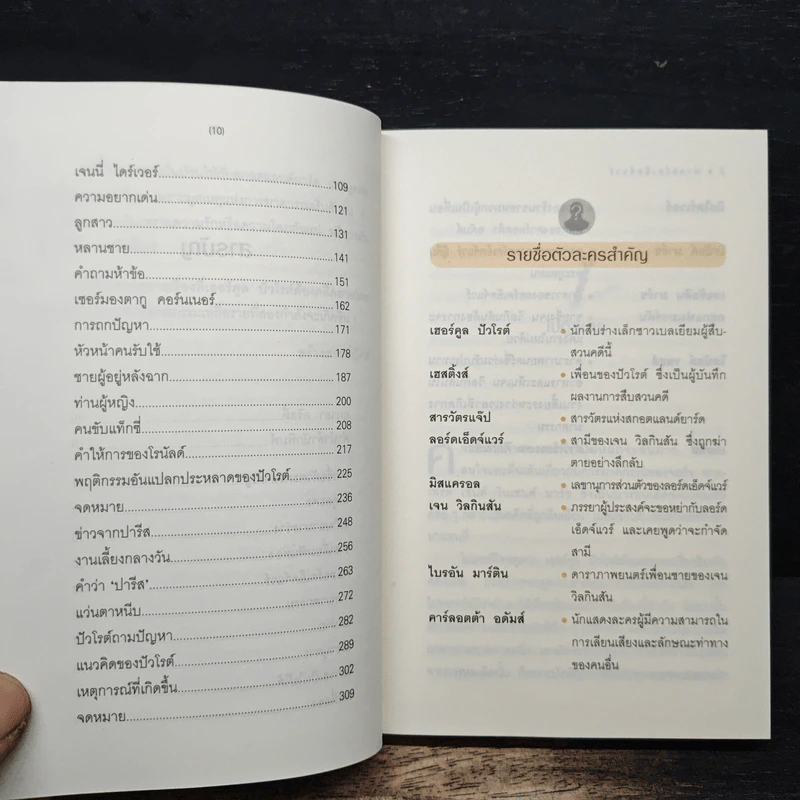 (10)
เจนนี่ ไดร์เวอร์ 109
ความอยากเด่น 121
ลูกสาว 131
หลานชาย 141
คำถามห้าข้อ 151
เซอร์มองตากู คอร์นเนอร์ 162
การถกปัญหา 171
หัวหน้าคนรับใช้ 178
ชายผู้อยู่หลังฉาก 187
ท่านผู้หญิง 200
คนขับแท็กซี่ 208
คำให้การของโรนัลด์ 217
พฤติกรรมอันแปลกประหลาดของปัวโรต์ 225
จดหมาย 236
ข่าวจากปารีส 248
งานเลี้ยงกลางวัน 256
คำว่า 'ปารีส' 263
แว่นตาหนีบ 272
ปัวโรต์ถามปัญหา 282
แนวคิดของปัวโรต์ 289
เหตุการณ์ที่เกิดขึ้น 302
จดหมาย 309
รายชื่อตัวละครสำคัญ
เฮอร์คูล ปัวโรต์ • นักสืบร่างเล็กชาวเบลเยียมผู้สืบ-
สวนคดีนี้
เฮสติ้งส์ • เพื่อนของปัวโรต์ ซึ่งเป็นผู้บันทึก
ผลงานการสืบสวนคดี
สารวัตรแจ๊ป • สารวัตรแห่งสกอตแลนด์ยาร์ด
ลอร์ดเอ็ดจ์แวร์ • สามีของเจน วิลกินสัน ซึ่งถูกฆ่า
ตายอย่างลึกลับ
มิสแครอล • เลขานุการส่วนตัวของลอร์ดเอ็ดจ์แวร์
เจน วิลกินสัน • ภรรยาผู้ประสงค์จะขอหย่ากับลอร์ด
เอ็ดจ์แวร์ และเคยพูดว่าจะกำจัด
สามี
ไบรอัน มาร์ติน • ดาราภาพยนตร์เพื่อนชายของเจน
วิลกินสัน
คาร์ลอตต้า อดัมส์ • นักแสดงละครผู้มีความสามารถใน
การเลียนเสียงและลักษณะท่าทาง
ของคนอื่น